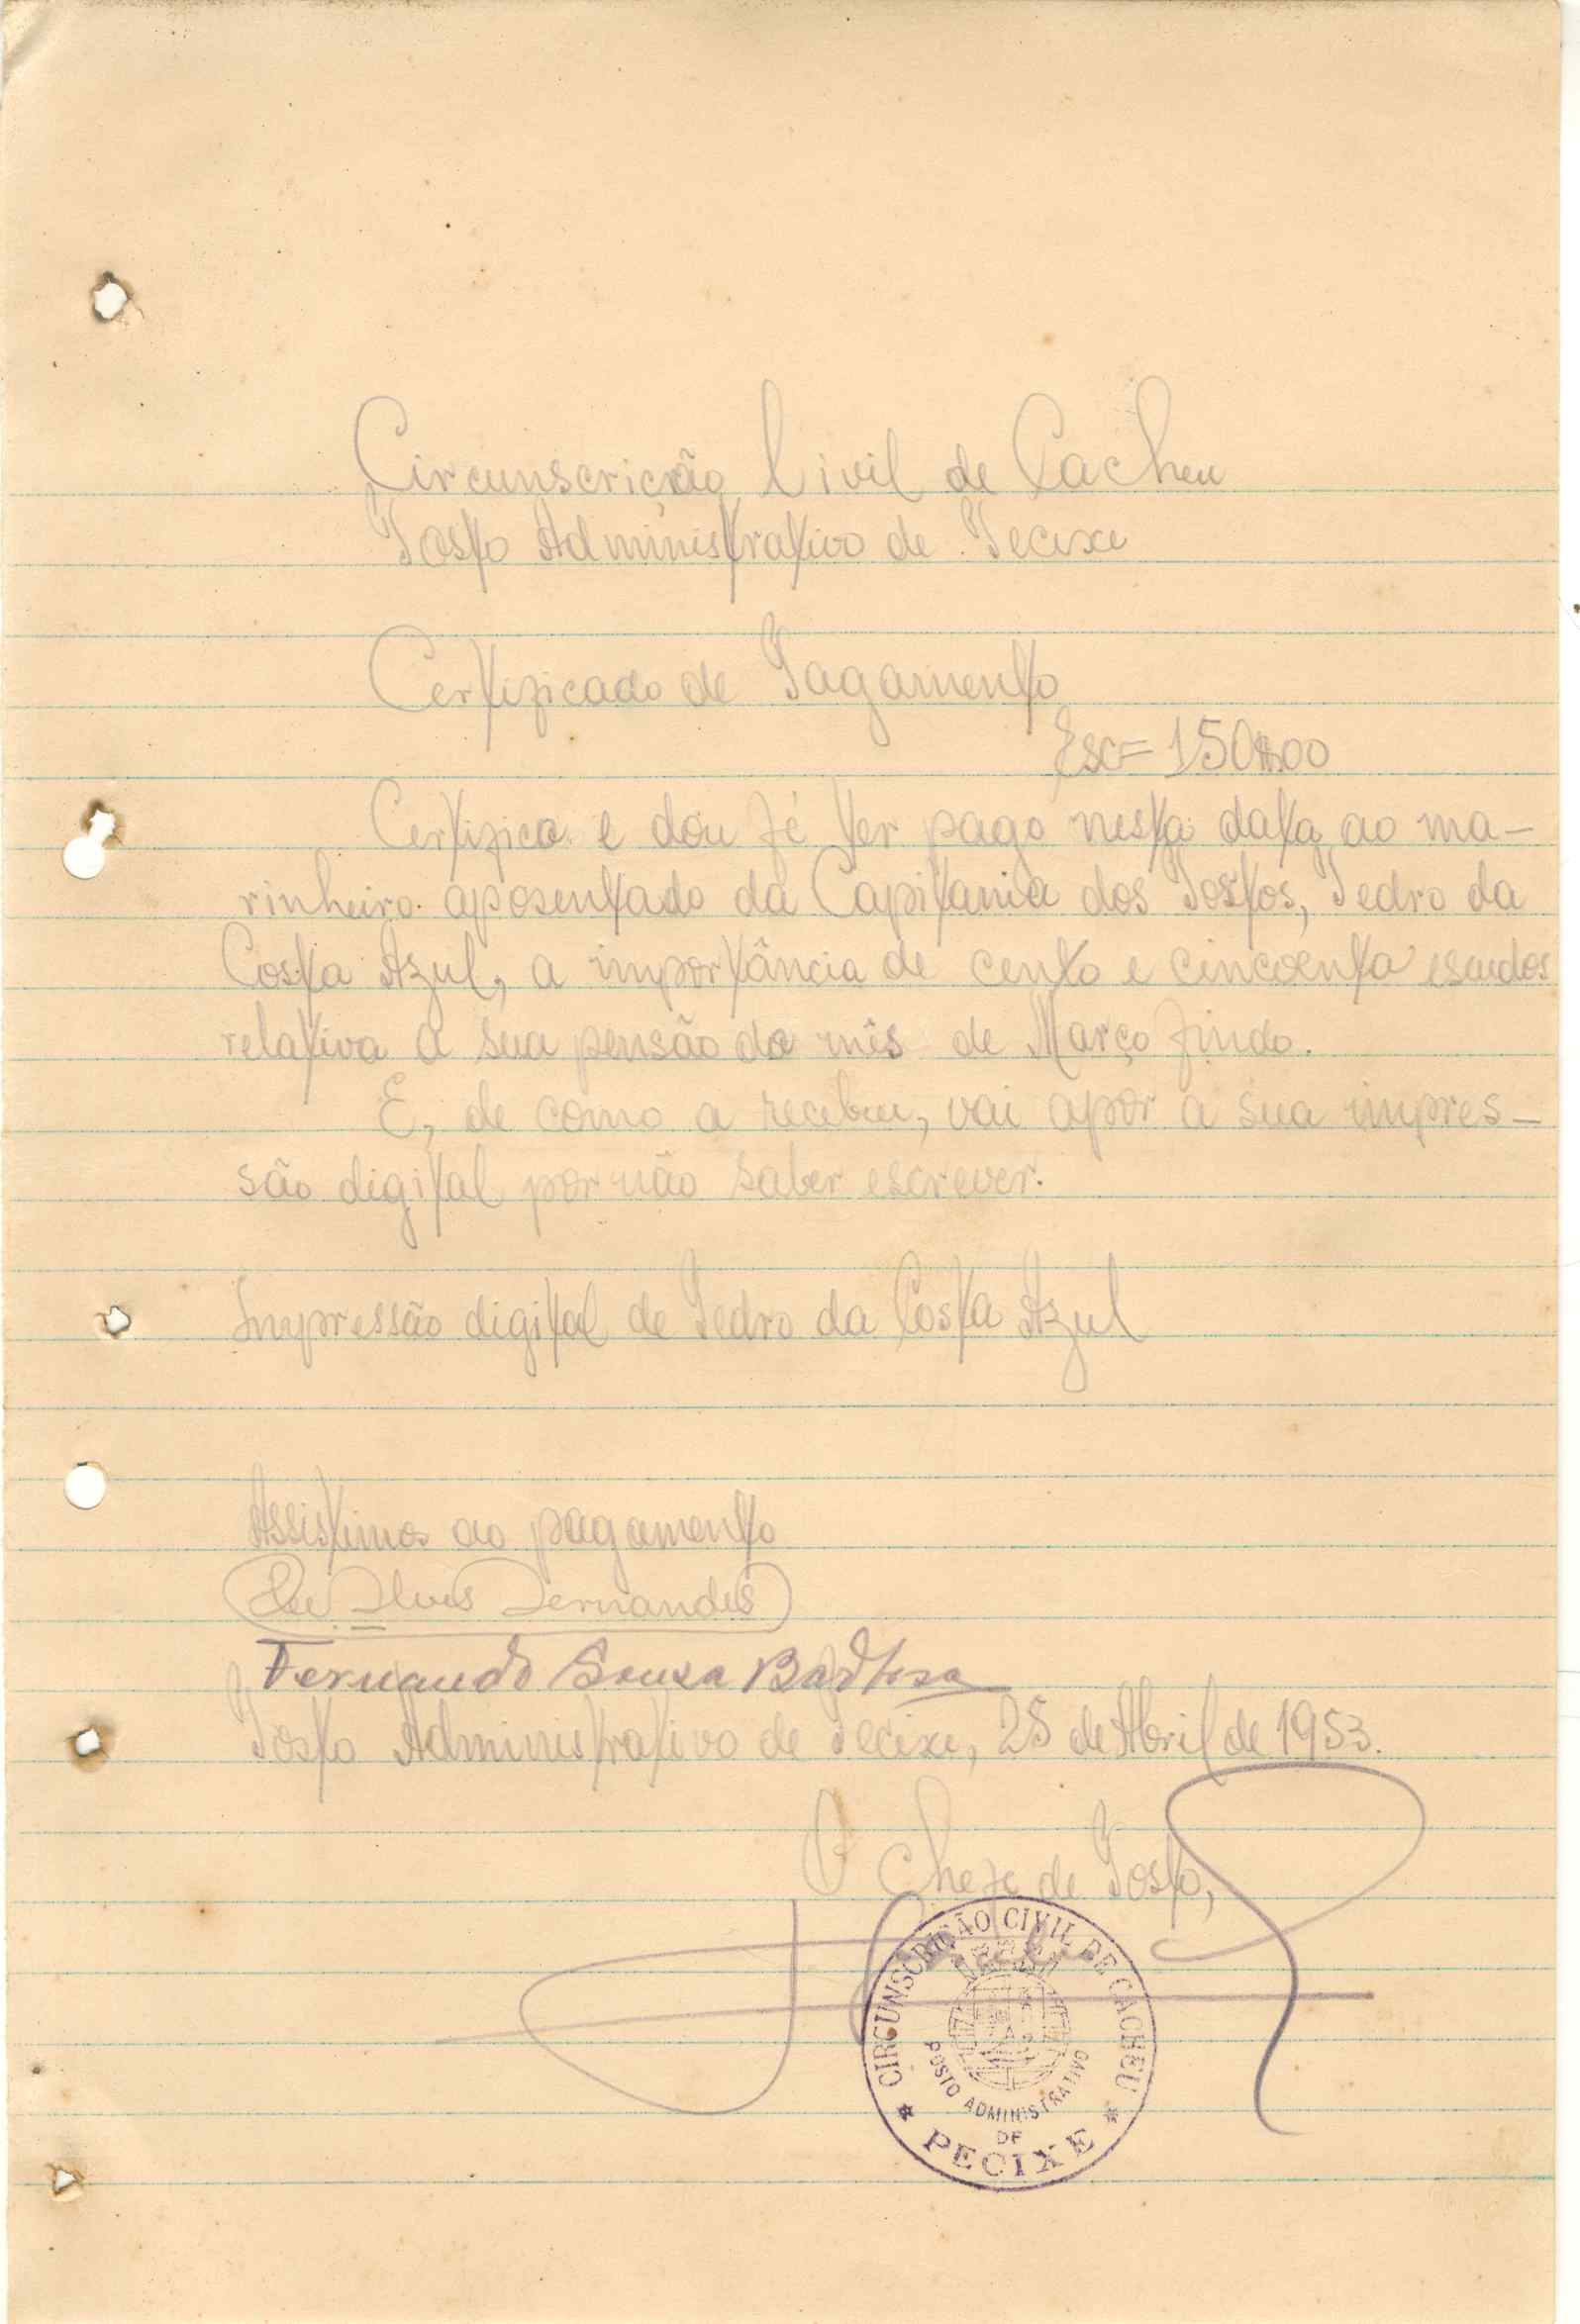 Circunscrição Civil de Cacheu
Posto Administrativo de Pecixe
Certificado de Pagamento
Esc= 150$00
Certifico e dou fé ter pago nesta data ao ma-
rinheiro aposentado da Capitania dos Postos, Pedro da
Costa Azul, a importância de cento e cincoenta escudos
relativa a sua pensão do mês de Março findo.
E, de como a recebeu, vai apor a sua impres-
são digital por não saber escrever.
Impressão digital de Pedro da Costa Azul
Assistimos ao pagamento
Alves Fernandes
Fernando Sousa Barbosa
Posto Administrativo de Pecixe, 25 de Abril de 1953.
O Chefe de Posto,
CIRCUNSCRIÇÃO CIVIL DE CACHEU
POSTO ADMINISTRATIVO
DE
* PECIXE *